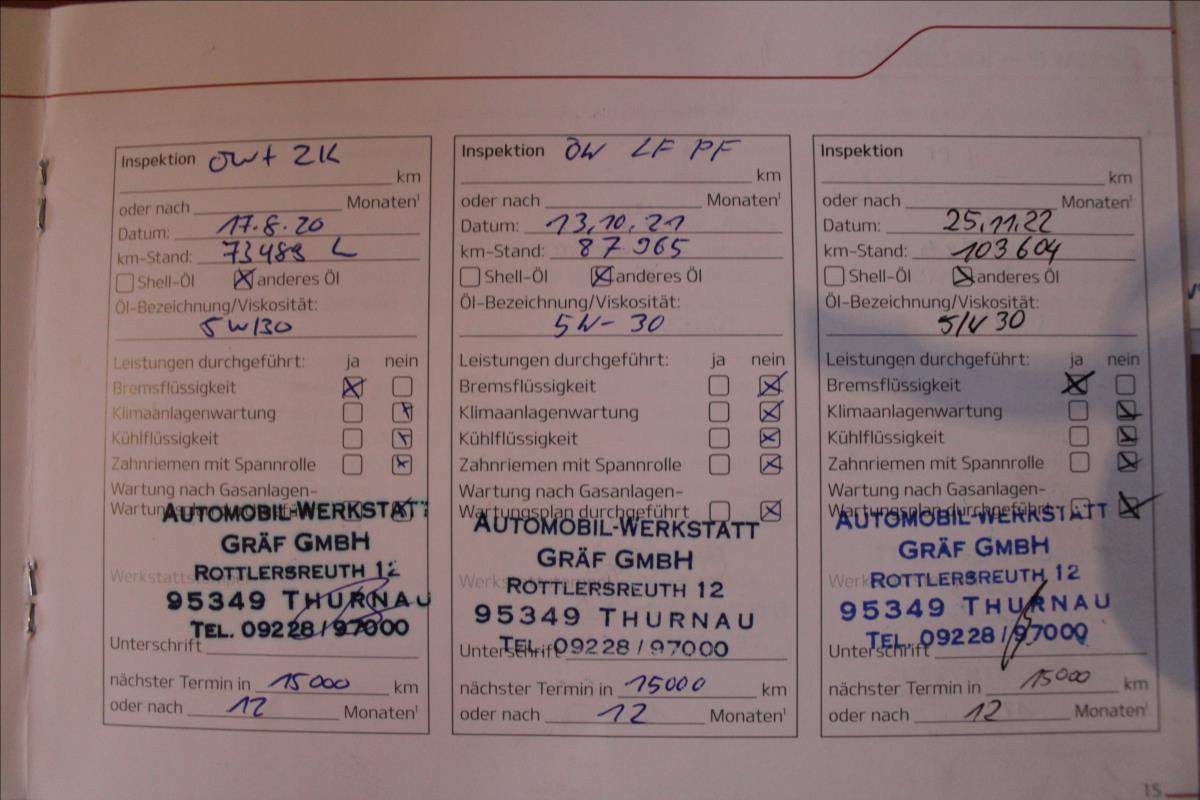 Inspektion ÖW+ ZK
km
oder nach Monaten¹
Datum: 17.8.20
km-Stand: 73489 L
Shell-Öl anderes Öl
Öl-Bezeichnung/Viskosität:
5W/30
Leistungen durchgeführt: ja nein
Bremsflüssigkeit
Klimaanlagenwartung
Kühlflüssigkeit
Zahnriemen mit Spannrolle
Wartung nach Gasanlagen-
Wartungsplan durchgeführt
AUTOMOBIL-WERKSTATT
GRÄF GMBH
ROTTLERSREUTH 12
95349 THURNAU
TEL. 09228/97000
Unterschrift
nächster Termin in 15000 km
oder nach 12 Monaten¹
Inspektion ÖW LF PF
km
oder nach Monaten¹
Datum: 13,10,21
km-Stand: 87965
Shell-Öl anderes Öl
Öl-Bezeichnung/Viskosität:
5W-30
Leistungen durchgeführt: ja nein
Bremsflüssigkeit
Klimaanlagenwartung
Kühlflüssigkeit
Zahnriemen mit Spannrolle
Wartung nach Gasanlagen-
Wartungsplan durchgeführt
AUTOMOBIL-WERKSTATT
GRÄF GMBH
ROTTLERSREUTH 12
95349 THURNAU
TEL. 09228/97000
Unterschrift
nächster Termin in 15000 km
oder nach 12 Monaten¹
Inspektion
km
oder nach Monaten¹
Datum: 25,11,22
km-Stand: 103604
Shell-Öl anderes Öl
Öl-Bezeichnung/Viskosität:
5W30
Leistungen durchgeführt: ja nein
Bremsflüssigkeit
Klimaanlagenwartung
Kühlflüssigkeit
Zahnriemen mit Spannrolle
Wartung nach Gasanlagen-
Wartungsplan durchgeführt
AUTOMOBIL-WERKSTATT
GRÄF GMBH
ROTTLERSREUTH 12
95349 THURNAU
TEL. 09228/97000
Unterschrift
nächster Termin in 15000 km
oder nach 12 Monaten¹
15